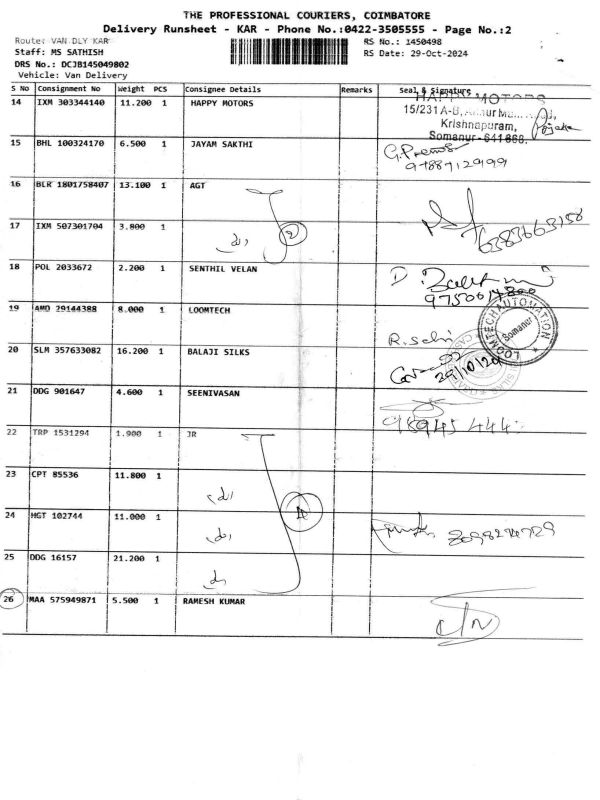 THE PROFESSIONAL COURIERS, COIMBATORE
Delivery Runsheet - KAR - Phone No.:0422-3505555 - Page No.:2
Route: VAN DLY KAR
RS No.: 1450498
Staff: MS SATHISH
RS Date: 29-Oct-2024
DRS No.: DCJB145049802
Vehicle: Van Delivery
S No Consignment No Weight PCS Consignee Details Remarks Seal & Signature
14 IXM 303344140 11.200 1 HAPPY MOTORS
HAPPY MOTORS
15/231 A-B,
Krishnapuram,
Somanur - 641 668.
15 BHL 100324170 6.500 1 JAYAM SAKTHI
16 BLR 1801758407 13.100 1 AGT
17 IXM 507301704 3.800 1
2
6383663158
18 POL 2033672 2.200 1 SENTHIL VELAN
19 AMD 29144388 8.000 1 LOOMTECH
LOOMTECH AUTOMATION
Somanur
20 SLM 357633082 16.200 1 BALAJI SILKS
29/10/24
21 DDG 901647 4.600 1 SEENIVASAN
22 TRP 1531294 1.900 1 JR
23 CPT 85536 11.800 1
4
24 HGT 102744 11.000 1
25 DDG 16157 21.200 1
26 MAA 575949871 5.500 1 RAMESH KUMAR